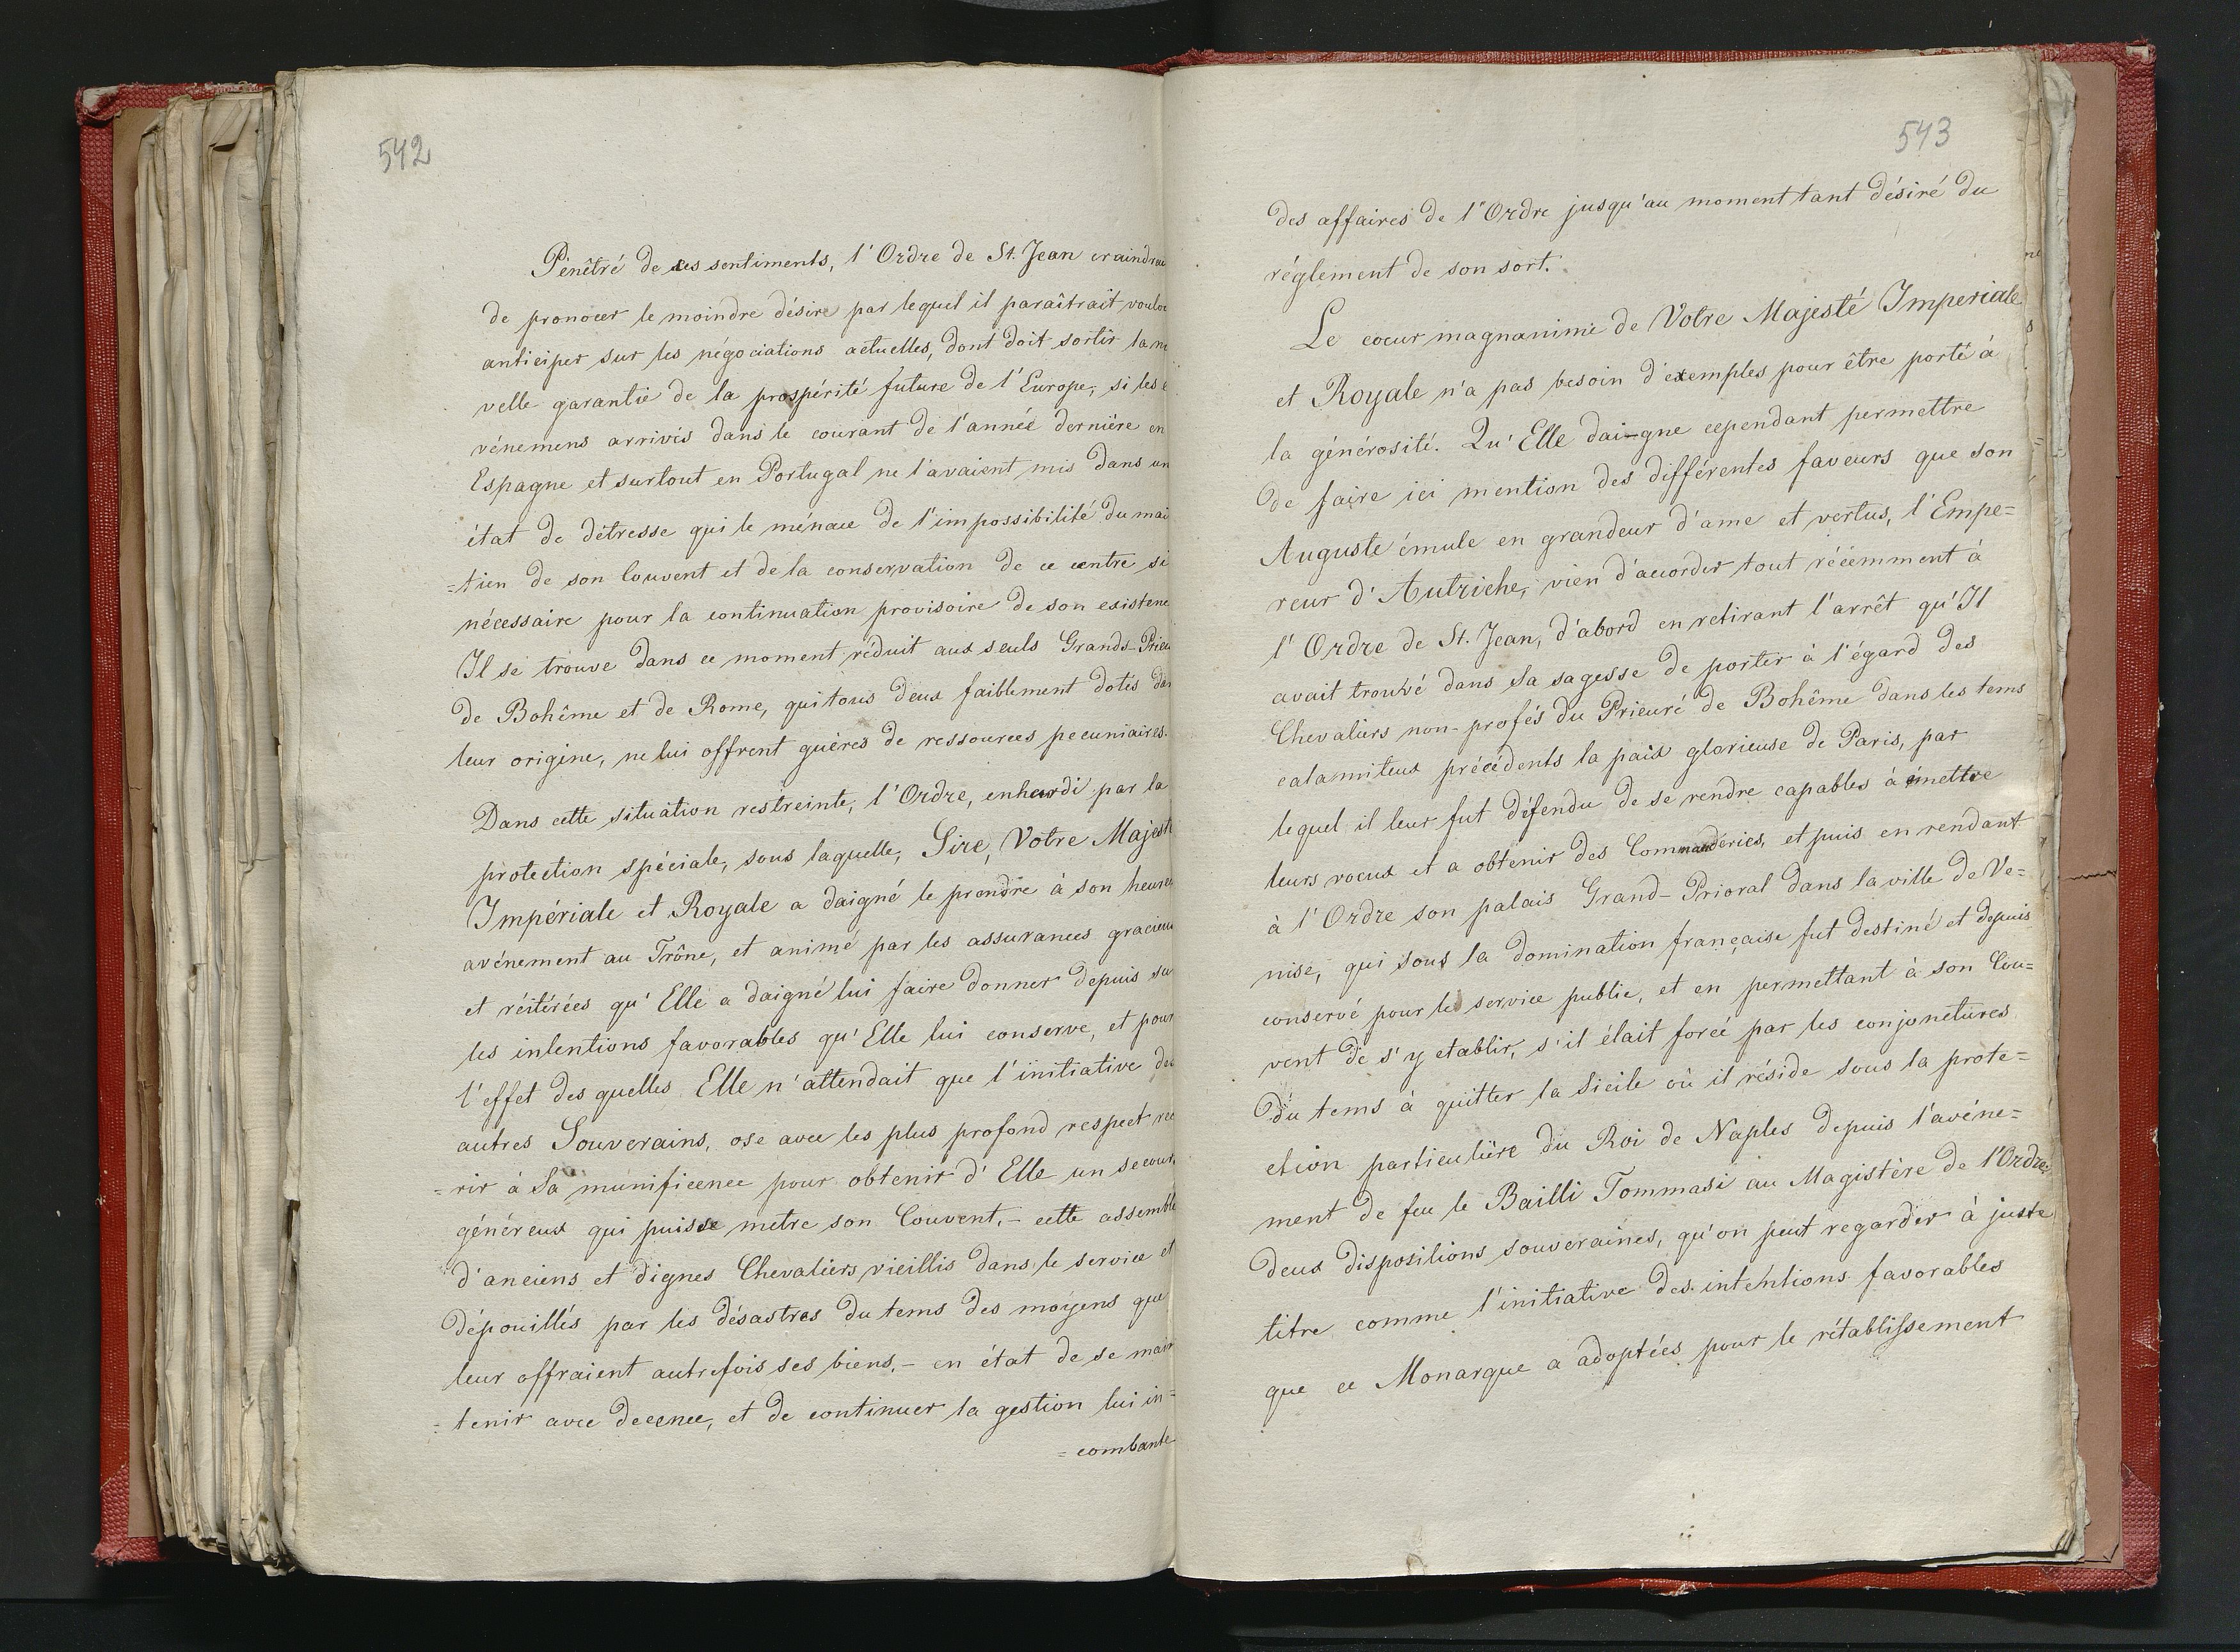 542
Pénêtré de ses sentiments, l'Ordre de St. Jean craindrai
de prononcer le moindre désire par lequel il paraîtrait vouloi
anticiper sur les négociations actuelles, dont doit sortir la no
velle garantie de la prospérité future de l'Europe; si les é
vénemens arrivés dans le courant de l'année dernière en
Espagne et surtout en Portugal ne l'avaient mis dans un
état de détresse qui le ménace de l'impossibilité du mai
=tien de son Couvent et de la conservation de ce centre si
nécessaire pour la continuation provisoire de son existenc
Il se trouve dans ce moment réduit aux seuls Grands-Prieu
de Bohême et de Rome, qui tous deux faiblement dotés dan
leur origine, ne lui offrent guères de ressources pecuniaires.
Dans cette situation restreinte, l'Ordre, enhardi par la
protection spéciale, sous laquelle, Sire, Votre Majest
Impériale et Royale a daigné le prendre à son heureu
avénement au Trône, et animé par les assurances gracieu
et réitérées qu'Elle a daigné lui faire donner depuis su
les intentions favorables qu'Elle lui conserve, et pour
l'effet des quelles Elle n'attendait que l'initiative des
autres Souverains, ose avec les plus profond respect rec
=rir à Sa munificence pour obtenir d'Elle un secour
généreux qui puisse metre son Couvent,- cette assemble
d'anciens et dignes Chevaliers vieillis dans le service et
dépouillés par les désastres du tems des moyens que
leur offraient autrefois ses biens,- en état de se main
=tenir avec decence, et de continuer la gestion lui in=
=combante
543
des affaires de l'Ordre jusqu'au moment tant désiré du
réglement de son sort.
Le coeur magnanime de Votre Majesté Imperiale
et Royale n'a pas besoin d'exemples pour être porté à
la générosité. Qu'Elle daigne cependant permettre
de faire ici mention des différentes faveurs que son
Auguste émule en grandeur d'ame et vertus, l'Empe=
reur d'Autriche, vien d'accorder tout récemment à
l'Ordre de St. Jean, d'abord en retirant l'arrêt qu'Il
avait trouvé dans Sa sagesse de porter à l'égard des
Chevaliers non-profés du Prieuré de Bohême dans les tems
calamiteux précédents la paix glorieuse de Paris, par
lequel il leur fut défendu de se rendre capables à émettre
leurs voeux et a obtenir des Commanderies, et puis en rendant
à l'Ordre son palais Grand-Prioral dans la ville de Ve=
nise, qui sous la domination française fut destiné et depuis
conservé pour le service public, et en permettant à son Cou=
vent de s'y etablir, s'il était forcé par les conjonctures
du tems à quitter la Sicile où il réside sous la prote=
ction particulière du Roi de Naples depuis l'avéne=
ment de feu le Bailli Tommasi au Magistère de l'Ordre;
deux dispositions souveraines, qu'on peut regarder à juste
titre comme l'initiative des intentions favorables
que ce Monarque a adoptées pour le rétablissement